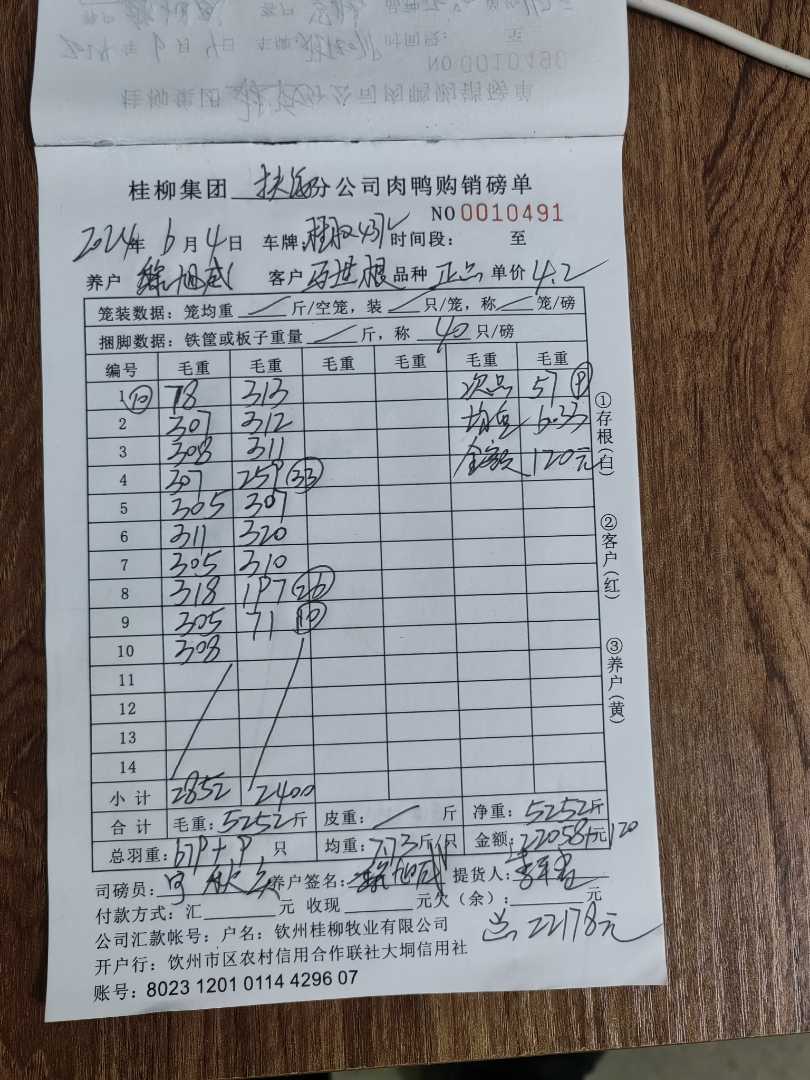 桂柳集团 扶绥分公司肉鸭购销磅单
NO 0010491
2024年 6月 4日 车牌: 时间段: 至
养户 客户 品种 正品 单价 4.2
笼装数据: 笼均重 ／ 斤/空笼, 装 ／ 只/笼, 称 ／ 笼/磅
捆脚数据: 铁筐或板子重量 ／ 斤, 称 40 只/磅
编号 毛重 毛重 毛重 毛重 毛重 毛重
1 ⑩ 78 313 次品 57 ⑨
2 307 312 均重 6.33
3 308 311 金额 120元
4 307 259 ㉝
5 305 307
6 311 320
7 305 310
8 318 197 ㉖
9 305 71 ⑩
10 308
11
12
13
14
小计 2852 2400
合计 毛重: 5252斤 皮重: ／ 斤 净重: 5252斤
总羽重: 679+9 只 均重: 7.73斤/只 金额: 22058元+120
司磅员: 养户签名: 提货人:
付款方式: 汇 元 收现 元欠(余): 元
总: 22178元
公司汇款帐号: 户名: 钦州桂柳牧业有限公司
开户行: 钦州市区农村信用合作联社大垌信用社
账号: 8023 1201 0114 4296 07
①存根(白)
②客户(红)
③养户(黄)